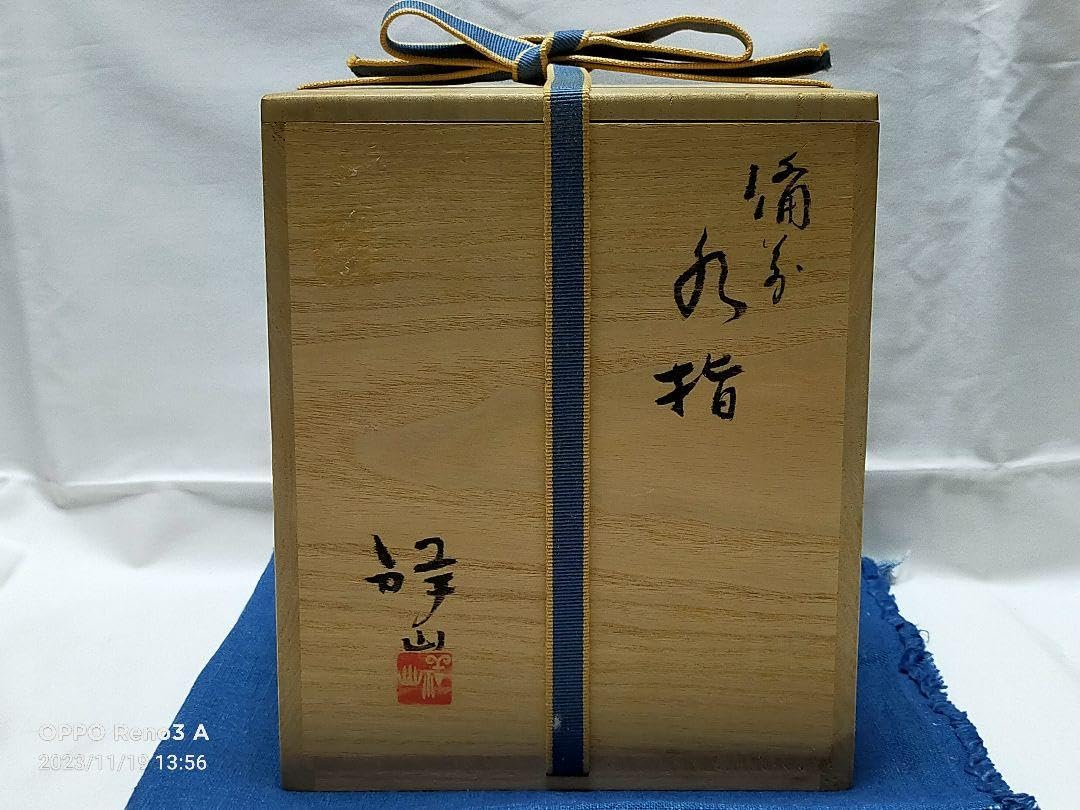 備前
水指
山
OPPO Reno3 A
2023/11/19 13:56